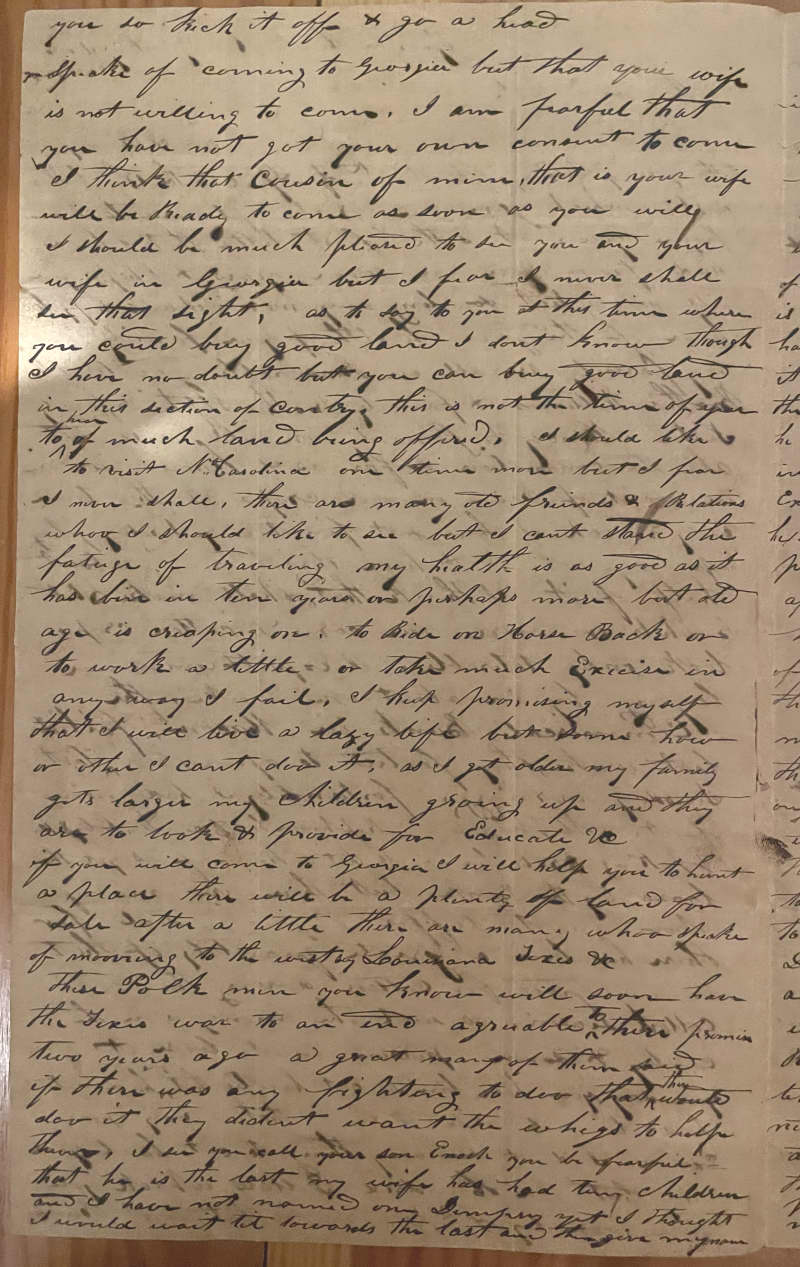 you so kick it off & go a head
speake of coming to Georgia but that your wife
is not willing to come, I am fearful that
you have not got your own consent to come
I think that Cousin of mine, that is your wife
will be Ready to come as soon as you will,
I should be much pleasd to see you and your
wife in Georgia but I fear I never shall
see that sight, as to say to you at this time where
you could buy good land I dont know though
I have no doubt but you can buy good land
in this section of contry, this is not the time of year
to hear of much land being offired. I should like
to visit N. Carolina one time more but I fear
I never shall, there are many old friends & Relations
whoo I should like to see but I cant stand the
fatiuge of traveling my health is as good as it
has bin in ten years or perhaps more but old
age is creaping on. to Ride on Horse Back or
to work a little or take much Excise in
any way I fail, I keep promising myself
that I will live a lazy life but some how
or other I cant doo it, as I get older my family
gets larger my children groing up and they
are to look & provide for Educate &c
if you will come to Georgia I will help you to hunt
a place there will be a plenty of land for
sale after a little there are many whoo speake
of mooving to the west say Louisiana Texes &c
These Polk men you know will soon have
the Texes war to an end agreable to there promise
two years ago a great many of them said
if there was any fighting to doo that they would
doo it they dident want the whigs to helpe
them, I see you call your son Enoch you be fearful
that he is the last my wife has had ten children
and I have not named one Dempsey yet I thought
I would wait til towards the last and then give my name